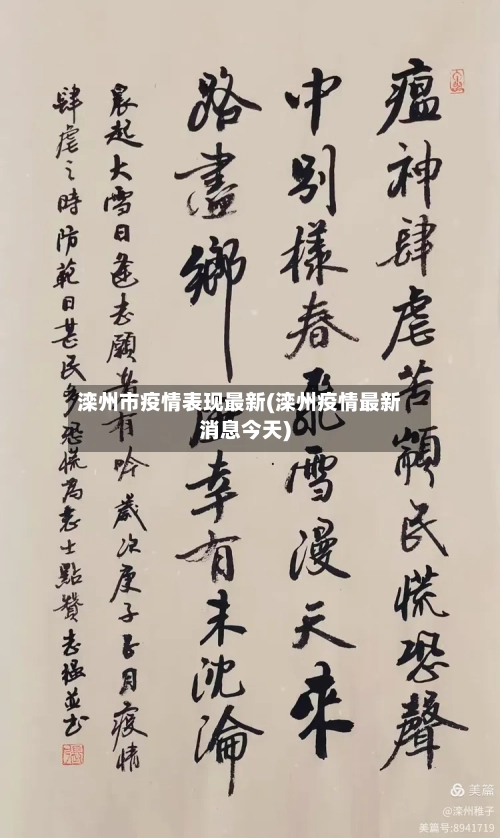 瘟神肆虐苦顓民慌恐聲
中別樣春飛雪漫天來
路盡鄉幸有未沈淪
晨起大雪日逢志願者有吟歲次庚子月疫情
肆虐之時防範日甚民多恐慌為志士點贊志並書
滦州市疫情表现最新(滦州疫情最新
消息今天)
美篇
@滦州稚子
美篇号:8941719